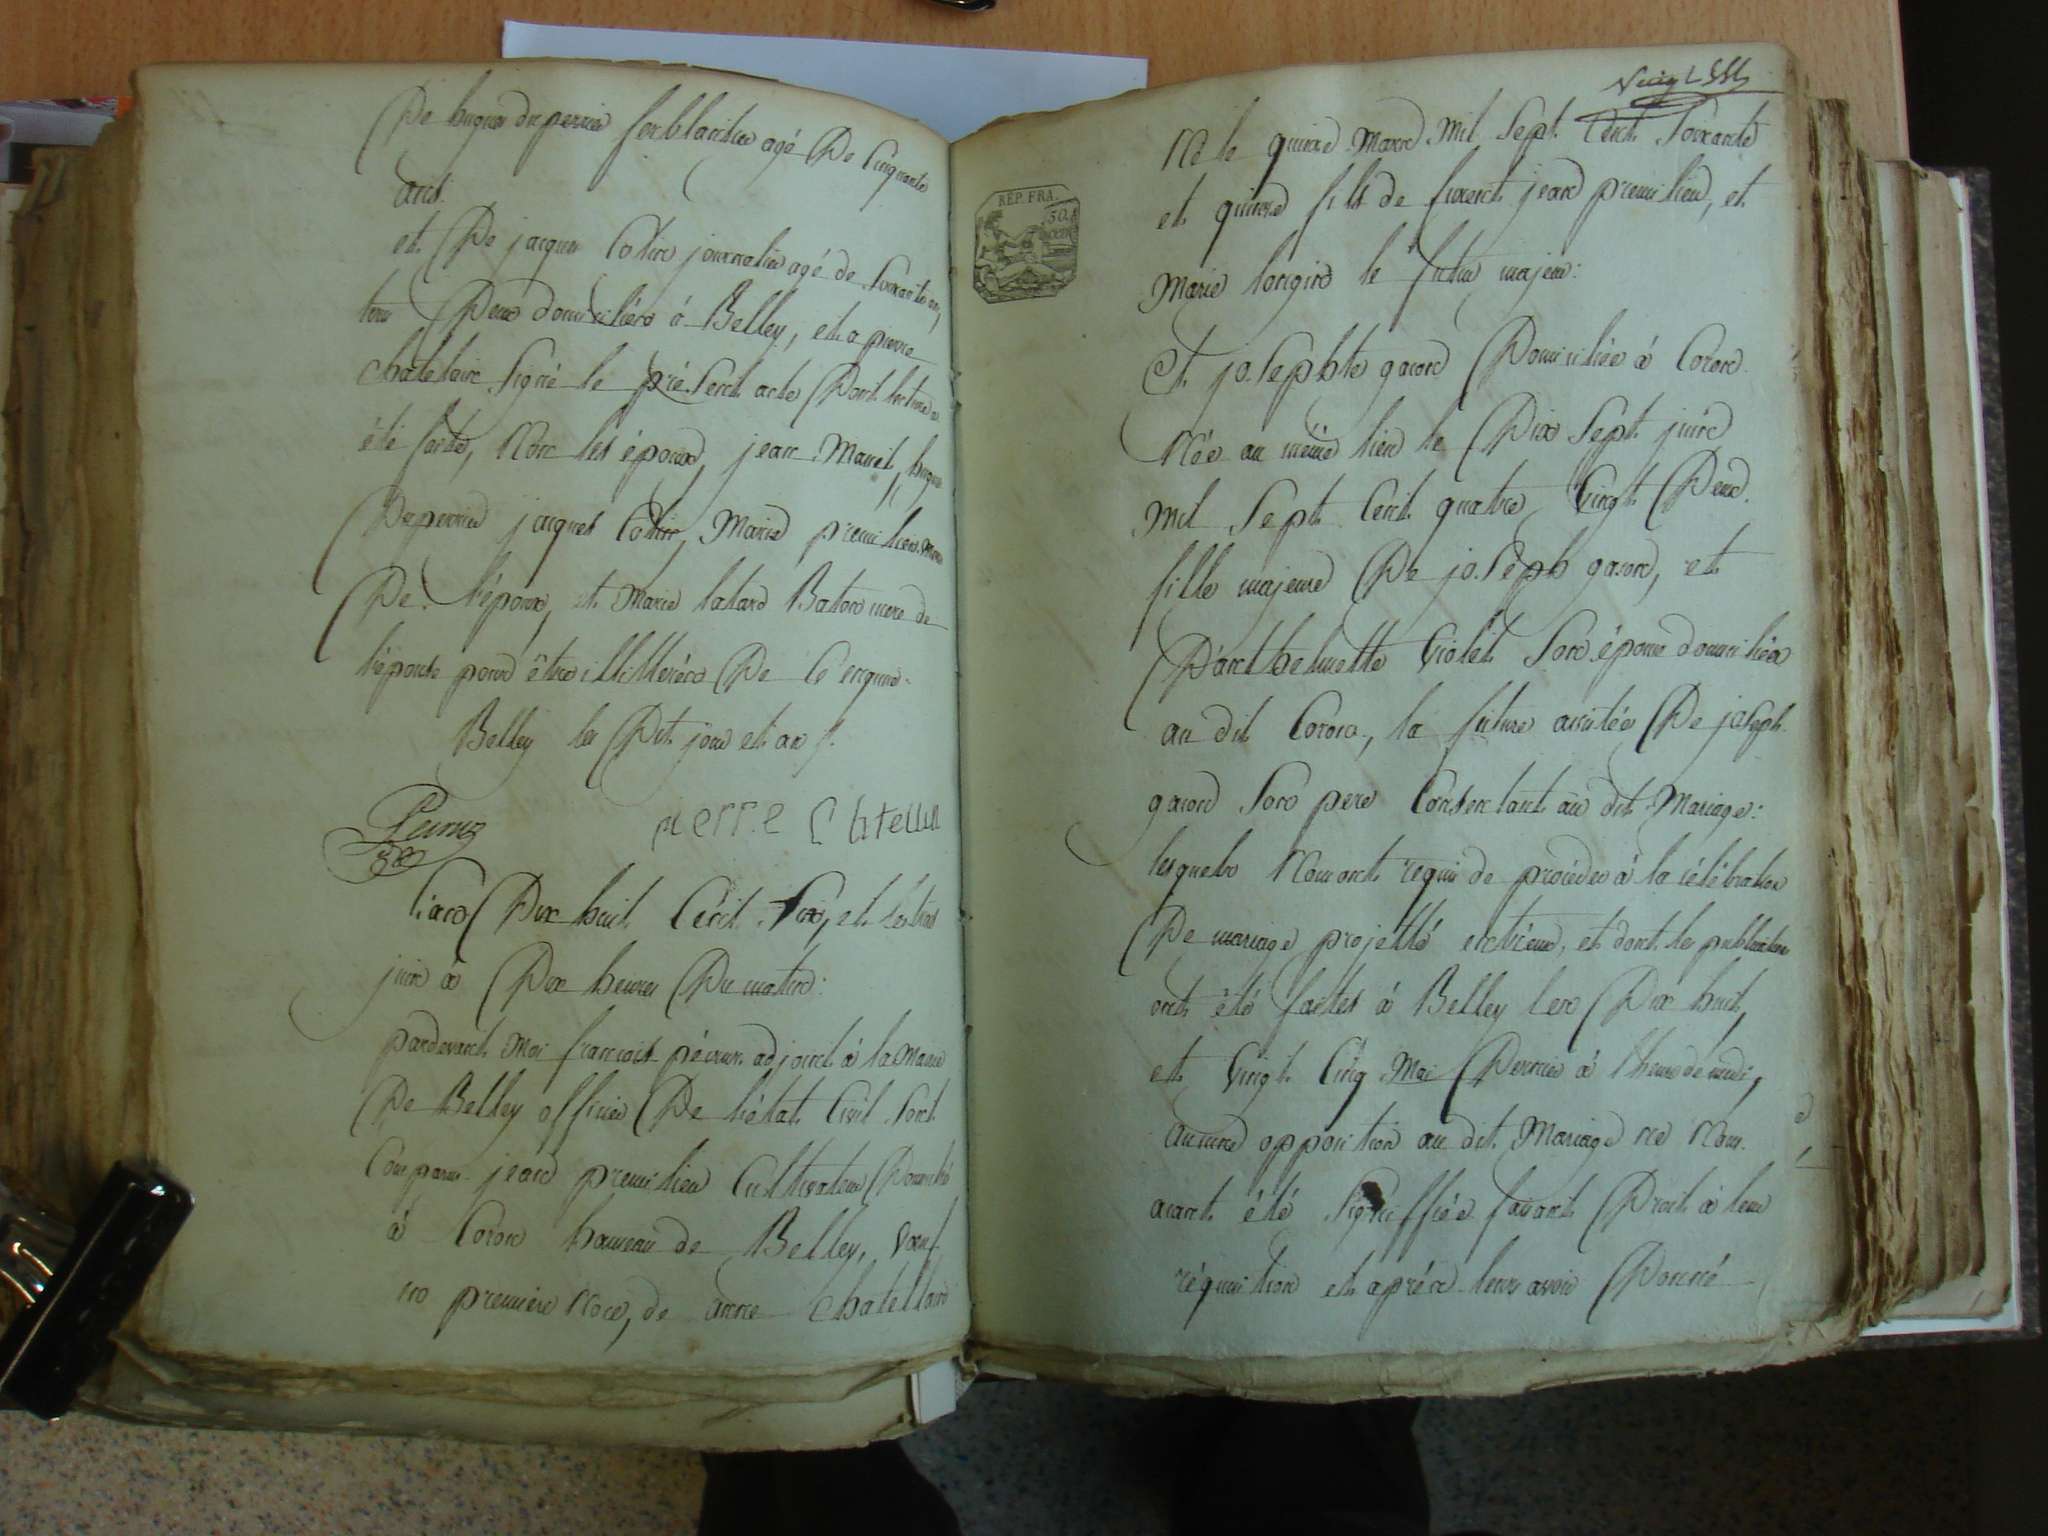 De hugue duperrier ferblantier agé De Cinquante
ans.
et De jacques Cottin journalier agé de Soixante ans,
tous Deux domiciliéro à Belley, et a pierre
chatelain Signé le présent acte Dont lecture a
été faite, Non les époux, jean Marcel, hugue
Duperrier jacques Cottin, Marie premilieu mere
De l'époux, et Marie Baton mere de
l'épouse pour être illitteréro De Ce enquiro.
Belley les Dit jour et an
pierre Chatellin
l'ano Dix huit Cent Six, et le trois
juin à Dix heures Du matin:
pardevant Moi françois péruz adjoint à la Mairie
De Belley officier De l'état Civil Sont
Comparus jean premilieu Cultivateur Domicilié
à Coron hameau de Belley, veuf
en premiere Noce, de anne chatellain
REP. FRA.
Né le quinze Mars Mil Sept Cent Soixante
et quinze fils de jean premilieu, et
Marie longin le futur majeur:
Et josephte gason Domiciliée à Coron.
Née au même lieu le Dix Sept juin
Mil Sept Cent quatre Vingt Deux.
fille majeure De joseph gason, et
D'anthelmette Violet Son épouse domiciliés
au dit Coron, la future assistée De joseph
gason Son pere Consentant au dit Mariage:
lesquels Nous ont requis de procéder à la célébration
De mariage projetté entr'eux, et dont les publications
ont été faites à Belley les Dix huit,
et Vingt Cinq Mai Dernier à l'heure de midi,
aucune opposition au dit Mariage ne Nous
aiant été Signiffiée faisant Droit à leur
réquisition et aprés leurs avoir Donné